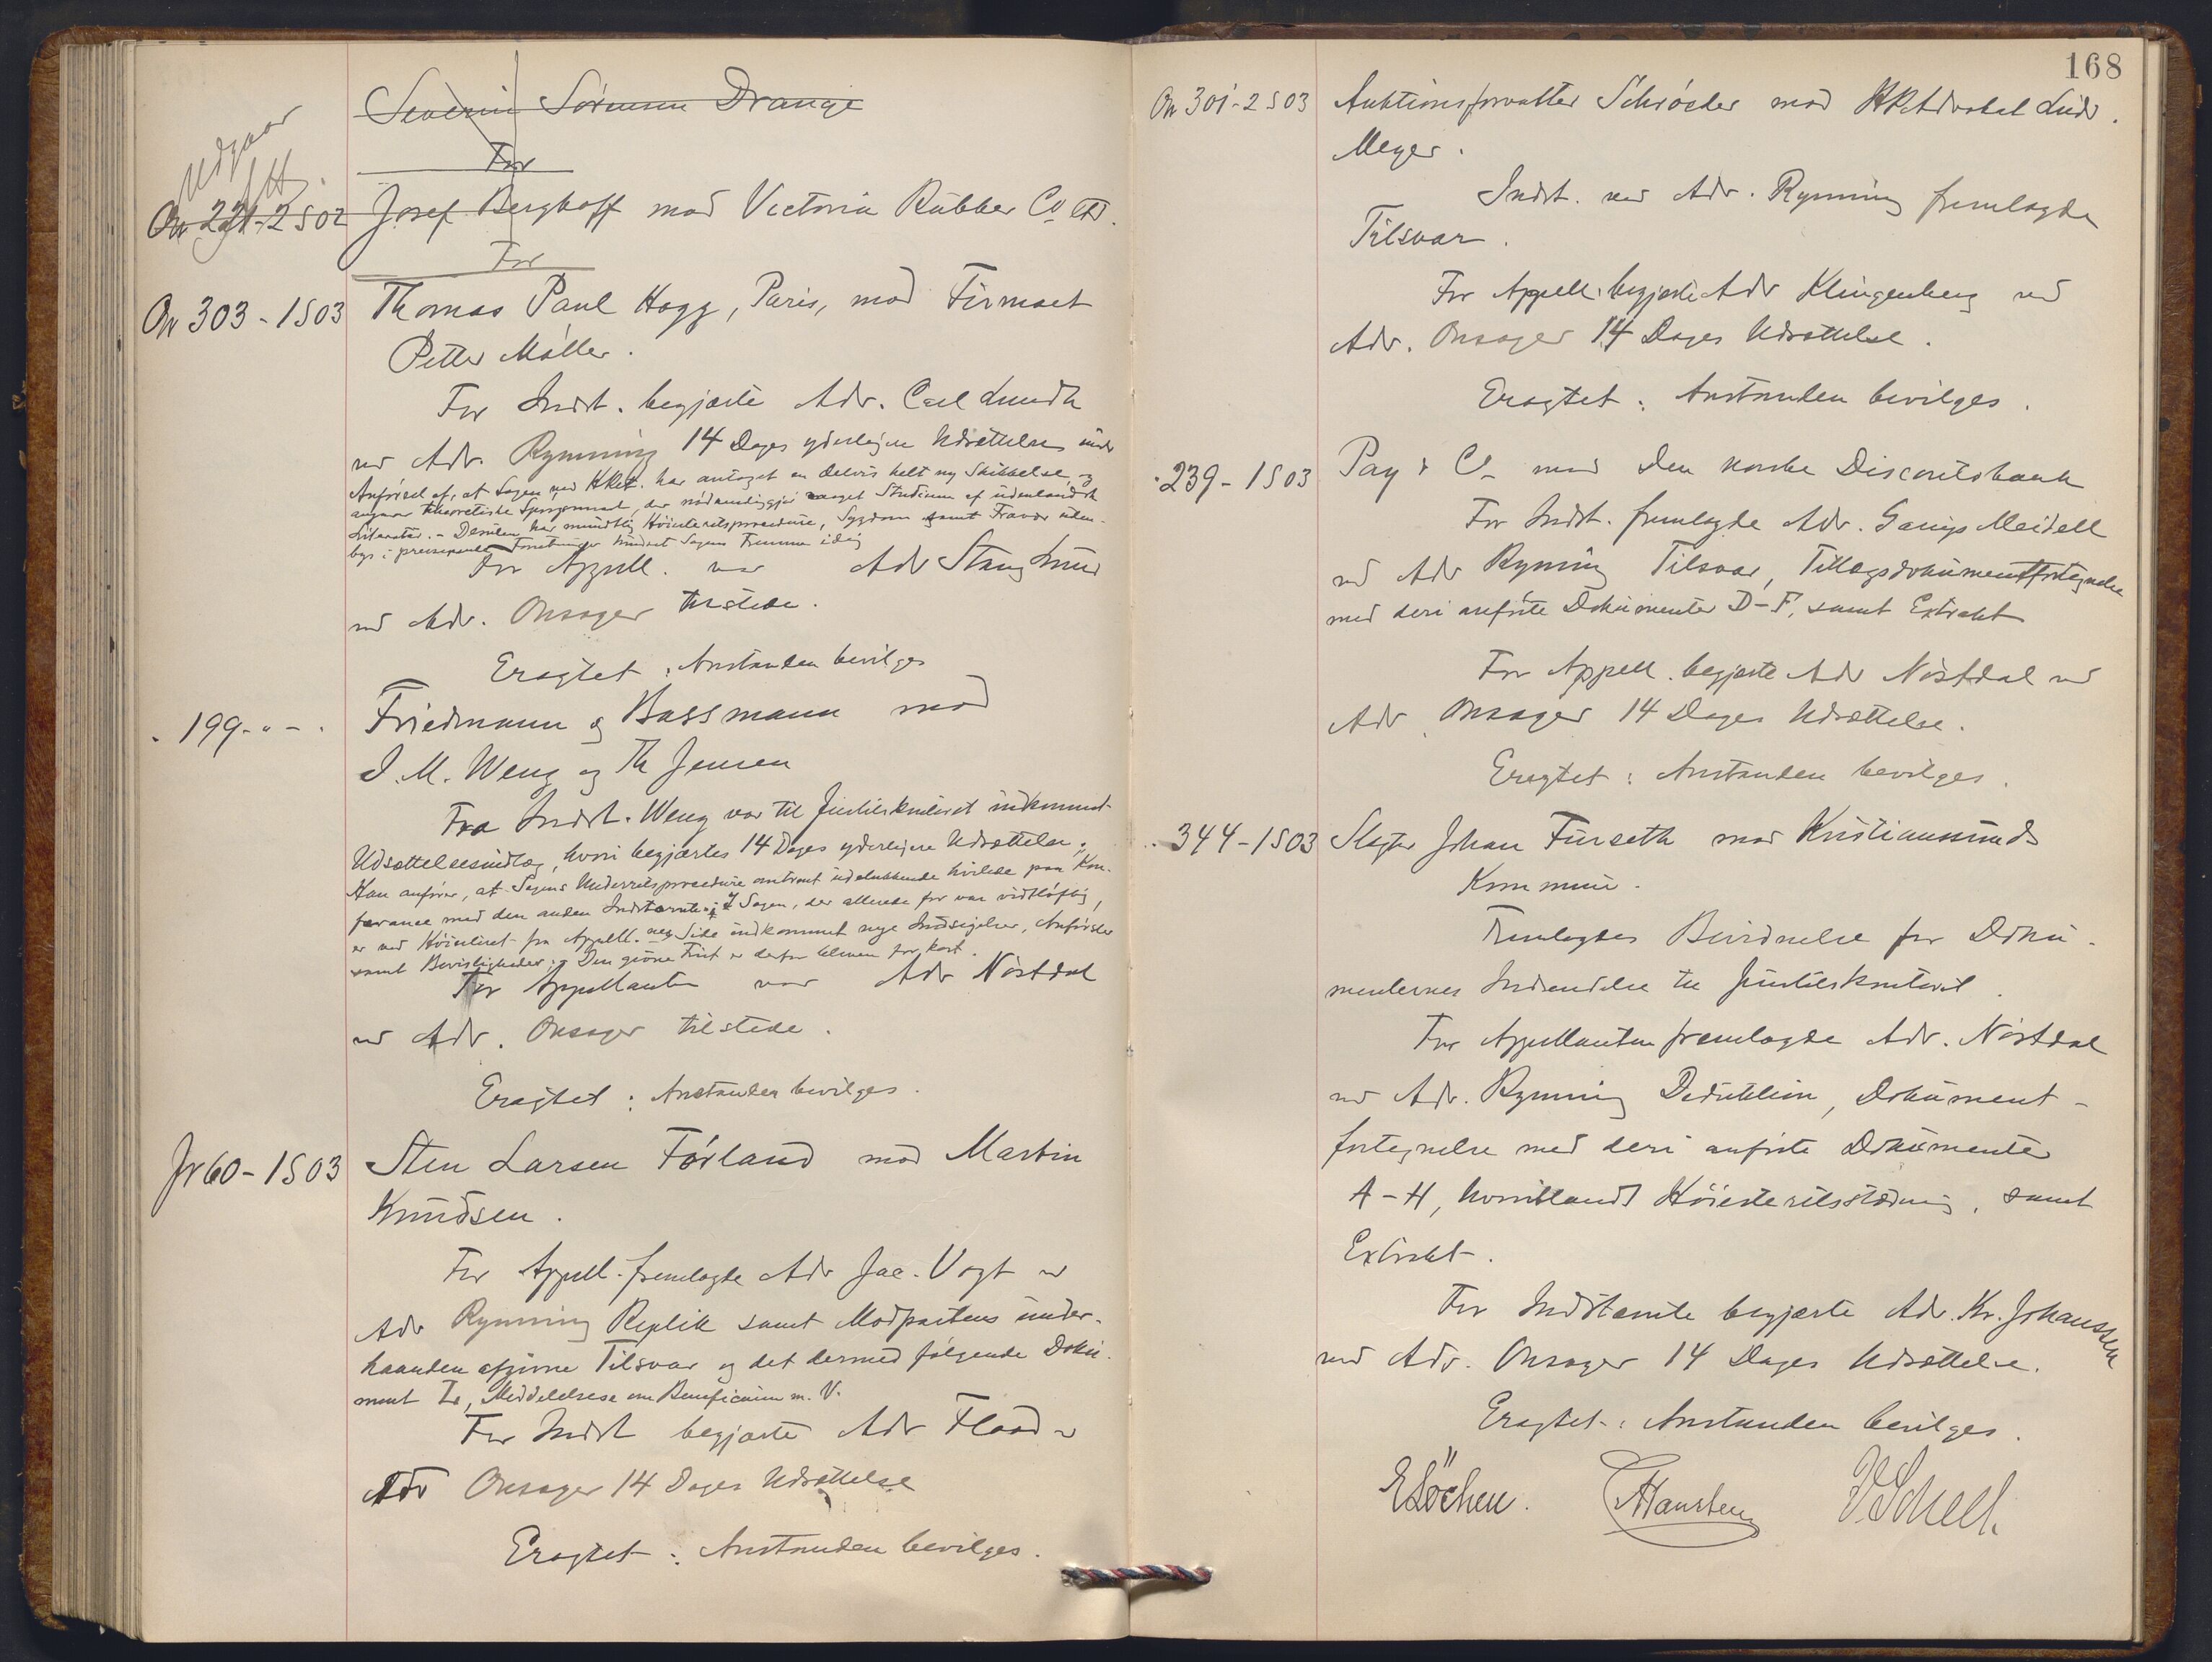 Severin Sörensen Drange
For
Udgaar
On 221-2 S 02 Josef Berghoff mod Victoria Rubber Co Ld.
For
On 303-1 S 03 Thomas Paul Hogg, Paris, mod Firmaet
Petter Möller.
For Indst. begjærte Adv. Carl Lundh
ved Adv. Rynning 14 Dages yderligere Udsættelse under
Anförsel af, at Sagen ved HRet. har antaget en delvis helt ny Skikkelse, og
angaar theoretiske Spörgsmaal, der nödvendiggjör meget Studium af udenlandsk
Literatur. - Desuden har mundtlig Höiesteretsprocedure, Sygdom samt Fravær uden-
bys i Forretninger hindret Sagens Fremme idag
For Appell. var Adv Stang Lund
ved Adv. Onsager tilstede.
Eragtet: Anstanden bevilges
" 199-"-" Friedmann & Bassmann mod
I. M. Weng og Th Jensen
Fra Indst. Weng var til Justitskontoret indkommet
Udsættelsesindlæg, hvori begjærtes 14 Dages yderligere Udsættelse;
Han anförer, at Sagens Underretsprocedure omtrent udelukkende hvilede paa Kon-
ferance med den anden Indstævnte; I Sagen, der allerede för var vidtlöftig,
er ved Höiesteret fra Appell. Side indkommet nye Indsigelser, Anförsler
samt Bevisligheder; Den givne Frist er derfor bleven for kort.
For Appellanten var Adv Nöstdal
ved Adv. Onsager tilstede.
Eragtet: Anstanden bevilges.
Jr 60-1 S 03 Sten Larsen Förland mod Martin
Knudsen.
For Appell. fremlagde Adv Jac. Vogt v
Adv Rynning Replik samt Modpartens under-
haanden afgivne Tilsvar og det dermed fölgende Doku-
ment L, Meddelelse om Beneficium m. V.
For Indst begjærte Adv Flood v
Adv Onsager 14 Dages Udsættelse
Eragtet: Anstanden bevilges.
168
On 301-2 S 03 Auktionsforvalter Schröder mod HRAdvokat Ludv.
Meyer.
Indst. ved Adv. Rynning fremlagde
Tilsvar.
For Appell. begjærte Adv Klingenberg ved
Adv. Onsager 14 Dages Udsættelse.
Eragtet: Anstanden bevilges.
" 239-1 S 03 Pay & Co mod Den norske Discontobank
For Indst. fremlagde Adv. Gerhard Meidell
ved Adv Rynning Tilsvar, Tillægsdokumentfortegnelse
med deri anförte Dokumenter D-F, samt Extrakt
For Appell. begjærte Adv Nöstdal ved
Adv. Onsager 14 Dages Udsættelse.
Eragtet: Anstanden bevilges.
" 344-1 S 03 Slagter Johan Furseth mod Kristianssunds
Kommune.
Fremlagdes Bevidnelse for Doku-
menternes Indsendelse til Justitskontoret.
For Appellanten fremlagde Adv. Nöstdal
ved Adv. Rynning Deduktion, Dokument-
fortegnelse med deri anförte Dokumenter
A-H, hvoriblandt Höiesteretsstævning, samt
Extrakt.
For Indstævnte begjærte Adv. Kr. Johanssen
ved Adv. Onsager 14 Dages Udsættelse.
Eragtet: Anstanden bevilges.
E Löchen. Hansteen Scheel.